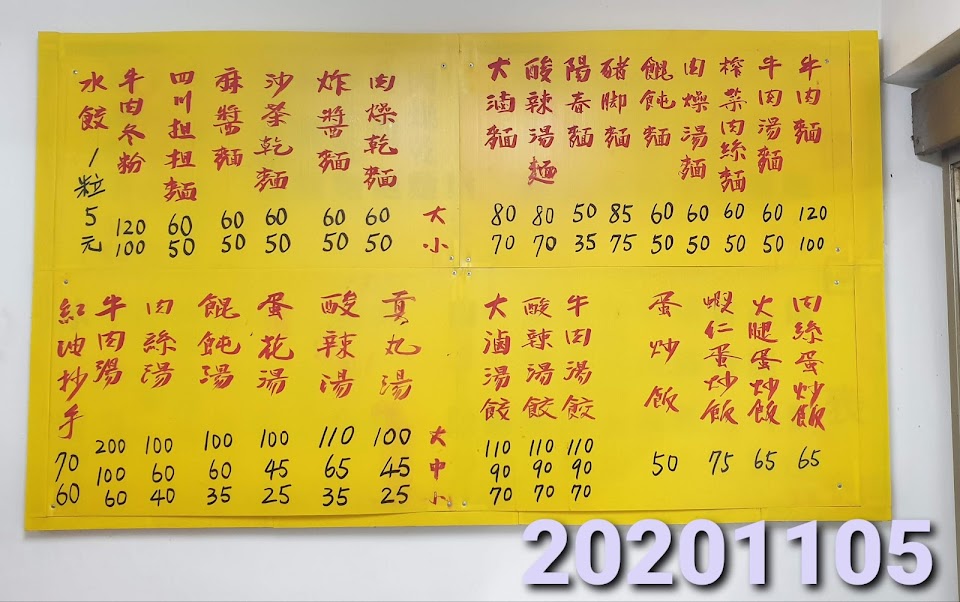 牛肉麵 120 100
牛肉湯麵 60 50
榨菜肉絲麵 60 50
肉燥湯麵 60 50
餛飩麵 60 50
豬腳麵 85 75
陽春麵 50 35
酸辣湯麵 80 70
大滷麵 80 70
大 小
肉燥乾麵 60 50
炸醬麵 60 50
沙茶乾麵 60 50
麻醬麵 60 50
四川担担麵 60 50
牛肉冬粉 120 100
水餃1粒5元
肉絲蛋炒飯 65
火腿蛋炒飯 65
蝦仁蛋炒飯 75
蛋炒飯 50
牛肉湯餃 110 90 70
酸辣湯餃 110 90 70
大滷湯餃 110 90 70
大 中 小
貢丸湯 100 45 25
酸辣湯 110 65 35
蛋花湯 100 45 25
餛飩湯 100 60 35
肉絲湯 100 60 40
牛肉湯 200 100 60
紅油抄手 70 60
20201105